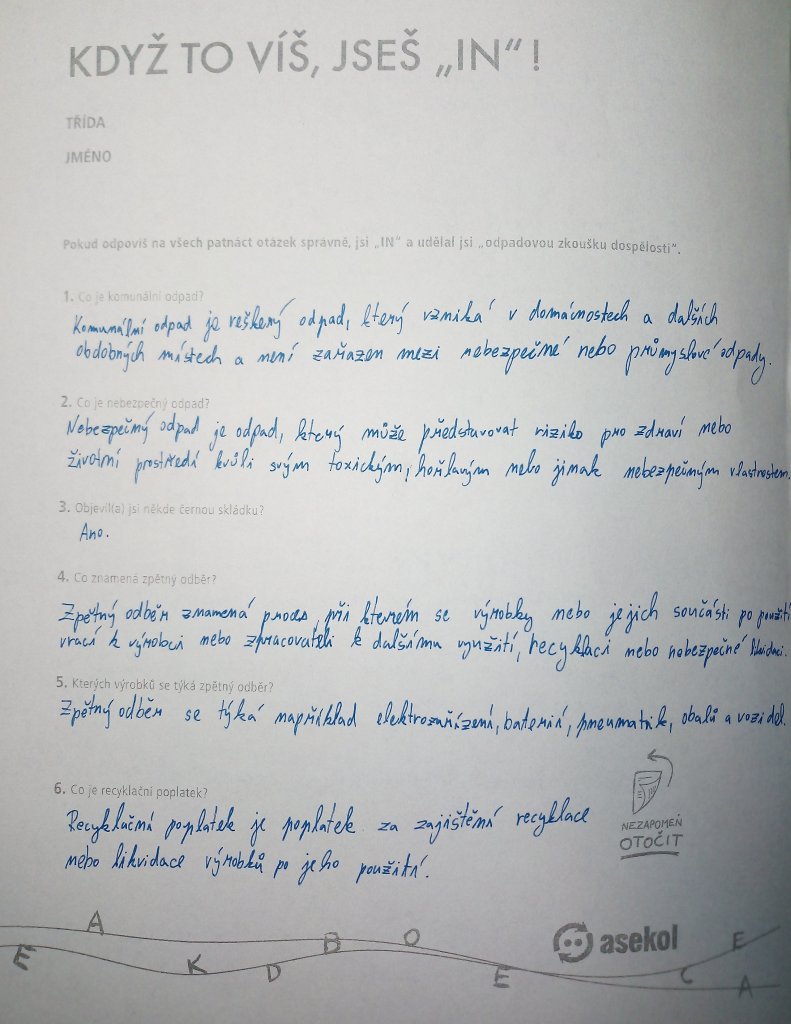 KDYŽ TO VÍŠ, JSEŠ „IN“!
TŘÍDA
JMÉNO
Pokud odpovíš na všech patnáct otázek správně, jsi „IN“ a udělal jsi „odpadovou zkoušku dospělosti“.
1. Co je komunální odpad?
Komunální odpad je veškerý odpad, který vzniká v domácnostech a dalších
obdobných místech a není zařazen mezi nebezpečné nebo průmyslové odpady.
2. Co je nebezpečný odpad?
Nebezpečný odpad je odpad, který může představovat riziko pro zdraví nebo
životní prostředí kvůli svým toxickým, hořlavým nebo jinak nebezpečným vlastnostem.
3. Objevil(a) jsi někde černou skládku?
Ano.
4. Co znamená zpětný odběr?
Zpětný odběr znamená proces, při kterém se výrobky nebo jejich součásti po použití
vrací k výrobci nebo zpracovateli k dalšímu využití, recyklaci nebo nebezpečné likvidaci.
5. Kterých výrobků se týká zpětný odběr?
Zpětný odběr se týká například elektrozařízení, baterií, pneumatik, obalů a vozidel.
6. Co je recyklační poplatek?
Recyklační poplatek je poplatek za zajištění recyklace
nebo likvidace výrobků po jeho použití.
NEZAPOMEŇ
OTOČIT
asekol
E A K D B O E C E A